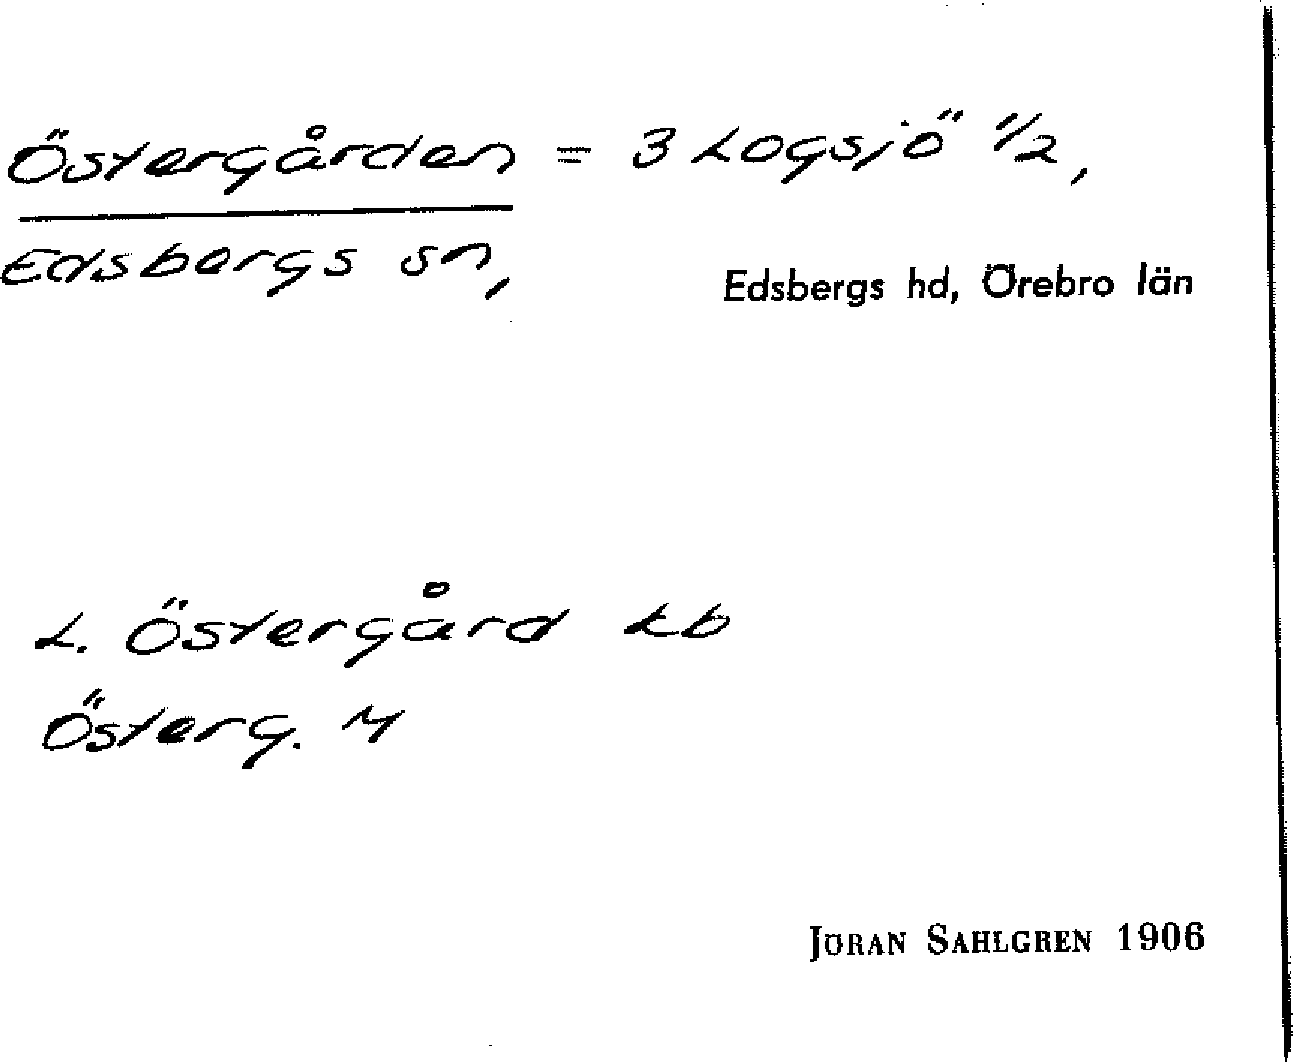 Östergården = 3 Logsjö 1/2,
Edsbergs sn,
Edsbergs hd, Örebro län
L. Östergård kb
Österg. M
JÖRAN SAHLGREN 1906